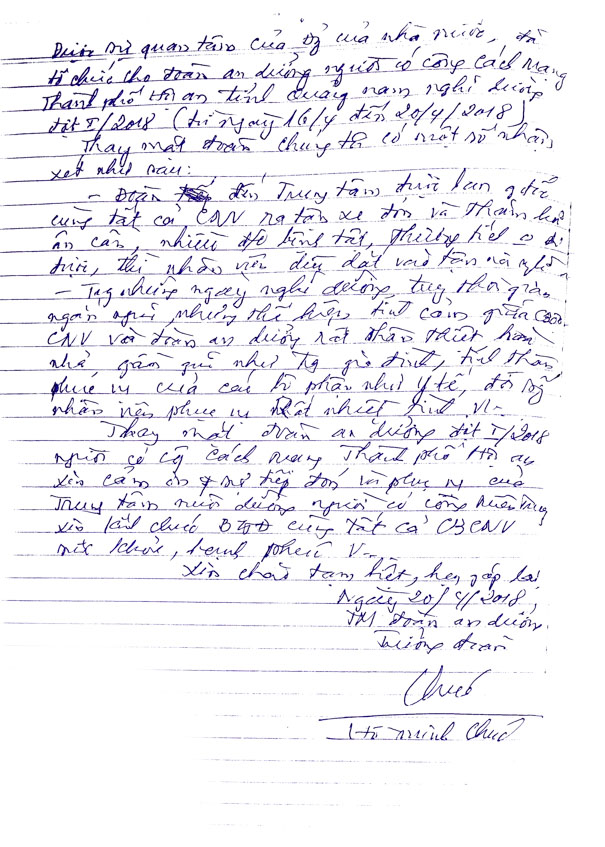 Dưới sự quan tâm của Đ của nhà nước, đã
tổ chức cho đoàn an dưỡng người có công cách mạng
Thành phố Hội an tỉnh quảng nam nghỉ dưỡng
đợt I/2018 (từ ngày 16/4 đến 20/4/2018)
Thay mặt đoàn chúng tôi có một số nhận
xét như sau:
- Đoàn đến Trung tâm được ban g đ
cùng tất cả CNV ra tận xe đón và thăm hỏi
ân cần, nhiều đ/c bệnh tật, thương tích
thì nhân viên dìu dắt vào tận nơi nghỉ
- Trg những ngày nghỉ dưỡng tuy thời gian
ngắn ngủi nhưng thể hiện tình cảm giữa
CNV với đoàn an dưỡng rất thân thiết hoà
nhã gần gũi như trg gia đình, tinh thần
phục vụ của các bộ phận như y tế, đội ngũ
nhân viên phục vụ rất nhiệt tình V-
Thay mặt đoàn an dưỡng đợt I/2018
người có cg cách mạng Thành phố Hội an
xin cảm ơn sự tiếp đón và phục vụ của
Trung tâm nuôi dưỡng người có công
xin kính chúc cùng tất cả CBCNV
sức khỏe, hạnh phúc V-
Xin chào tạm biệt, hẹn gặp lại
Ngày 20/4/2018,
TM đoàn an dưỡng
Trưởng đoàn
Chức
Hồ minh Chức